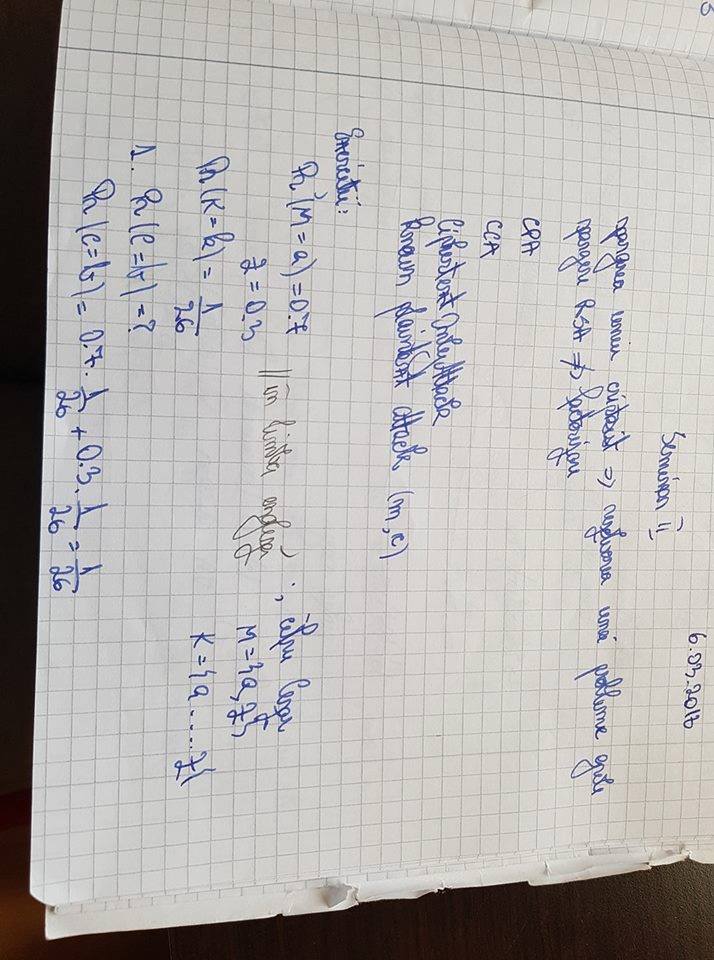 6.03.2018
Seminar II
spargerea unui criptosist => rezolvarea unei probleme grele
spargere RSA ≠> factorizare
CPA
CCA
Ciphertext Only Attack
Known plaintext attack (m, c)
Exerciții:
Pr(M=a) = 0.7
z = 0.3
// în limba engleză ; cifru Cezar
M = {a, z}
Pr(K=k) = 1/26
K = {a .... z}
1. Pr(C=b) = ?
Pr(C=b) = 0.7 · 1/26 + 0.3 · 1/26 = 1/26